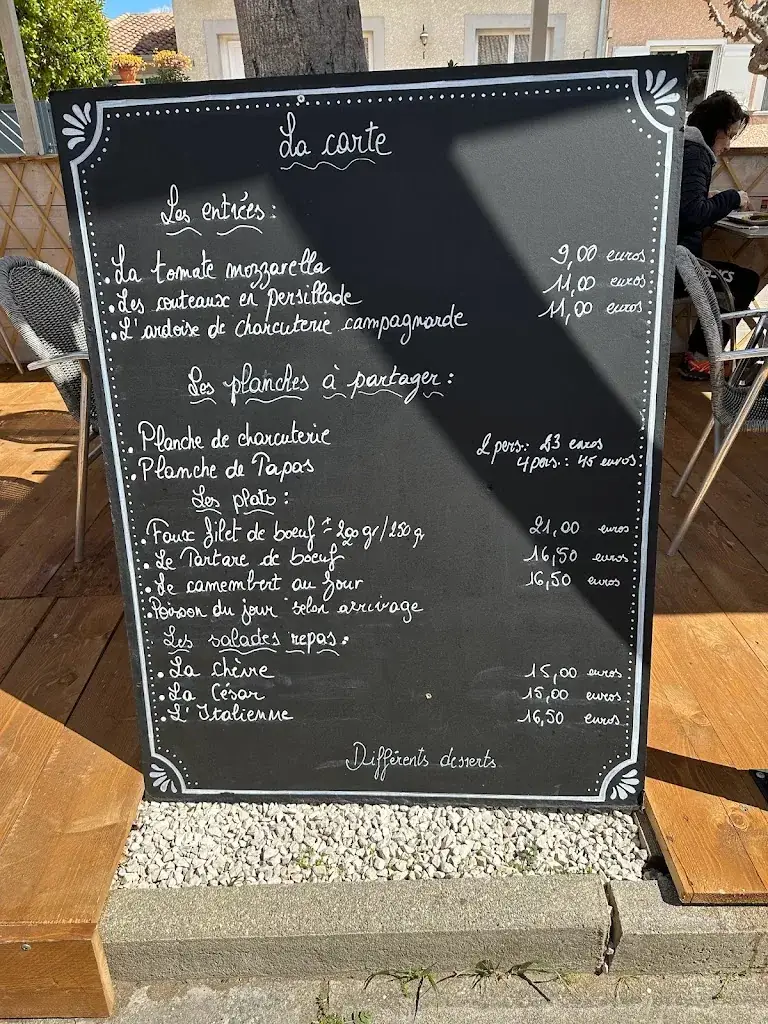 La carte
Les entrées :
.La tomate mozzarella 9,00 euros
.Les couteaux en persillade 11,00 euros
.L'ardoise de charcuterie campagnarde 11,00 euros
Les planches à partager :
.Planche de charcuterie 2 pers: 23 euros
.Planche de Tapas 4 pers.: 45 euros
Les plats :
.Faux filet de boeuf ± 200 gr/250 g 21,00 euros
.Le Tartare de boeuf 16,50 euros
.Le camembert au four 16,50 euros
.Poisson du jour selon arrivage
Les salades repas :
.La Chèvre 15,00 euros
.La César 15,00 euros
.L'Italienne 16,50 euros
Différents desserts